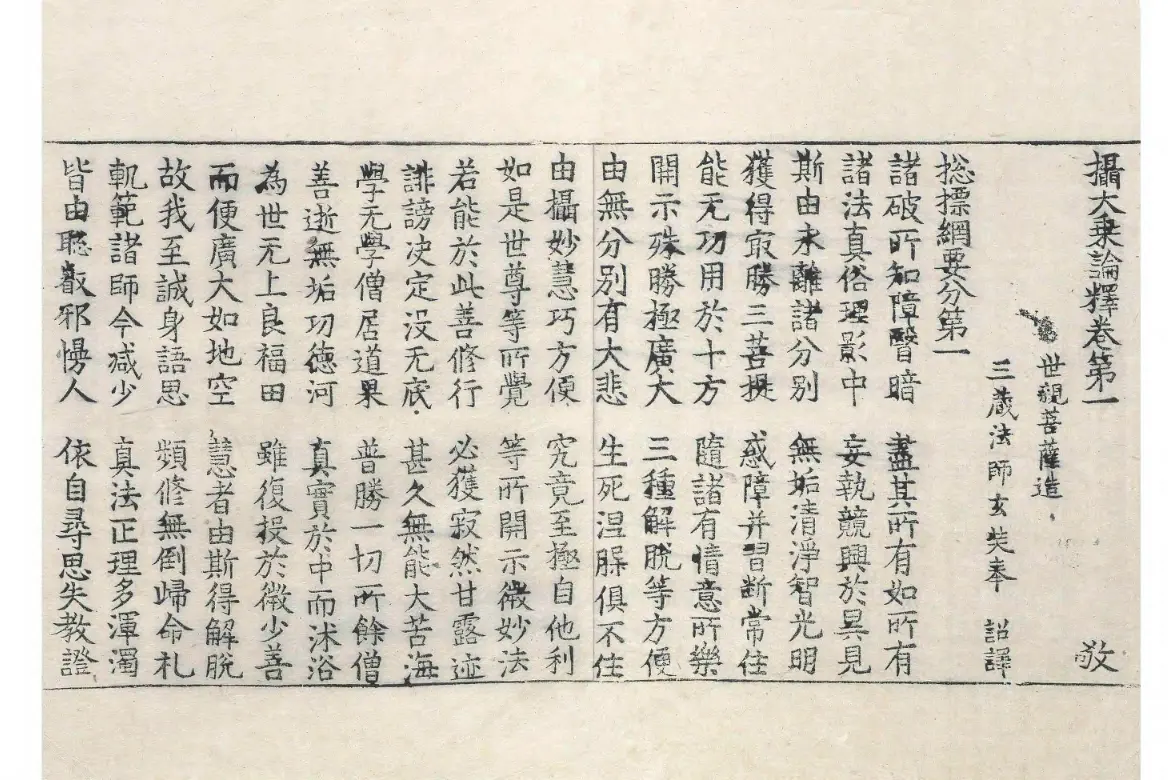 攝大乗論釋卷第一 敬
世親菩薩造
三蔵法師玄奘奉 詔譯
揔摽網要分第一
諸破所知障瞖暗 盡其所有如所有
諸法真俗理影中 妄執競興於異見
斯由永離諸分別 無垢清淨智光明
獲得㝡勝三菩提 惑障并習斷常住
能无功用於十方 隨諸有情意所樂
開示殊勝極廣大 三種解脫等方便
由無分別有大悲 生死涅槃俱不住
由攝妙慧巧方便 究竟至極自他利
如是世尊等所覺 等所開示微妙法
若能於此善修行 必獲寂然甘露迹
誹謗决定没无底 甚久無能大苦海
學无學僧居道果 普勝一切所餘僧
善逝無垢功德河 真實於中而沐浴
為世无上良福田 雖復投於微少善
而便廣大如地空 慧者由斯得解脫
故我至誠身語思 頻修無倒歸命礼
軌範諸師今减少 真法正理多渾濁
皆由聡叡邪慢人 依自尋思失教證